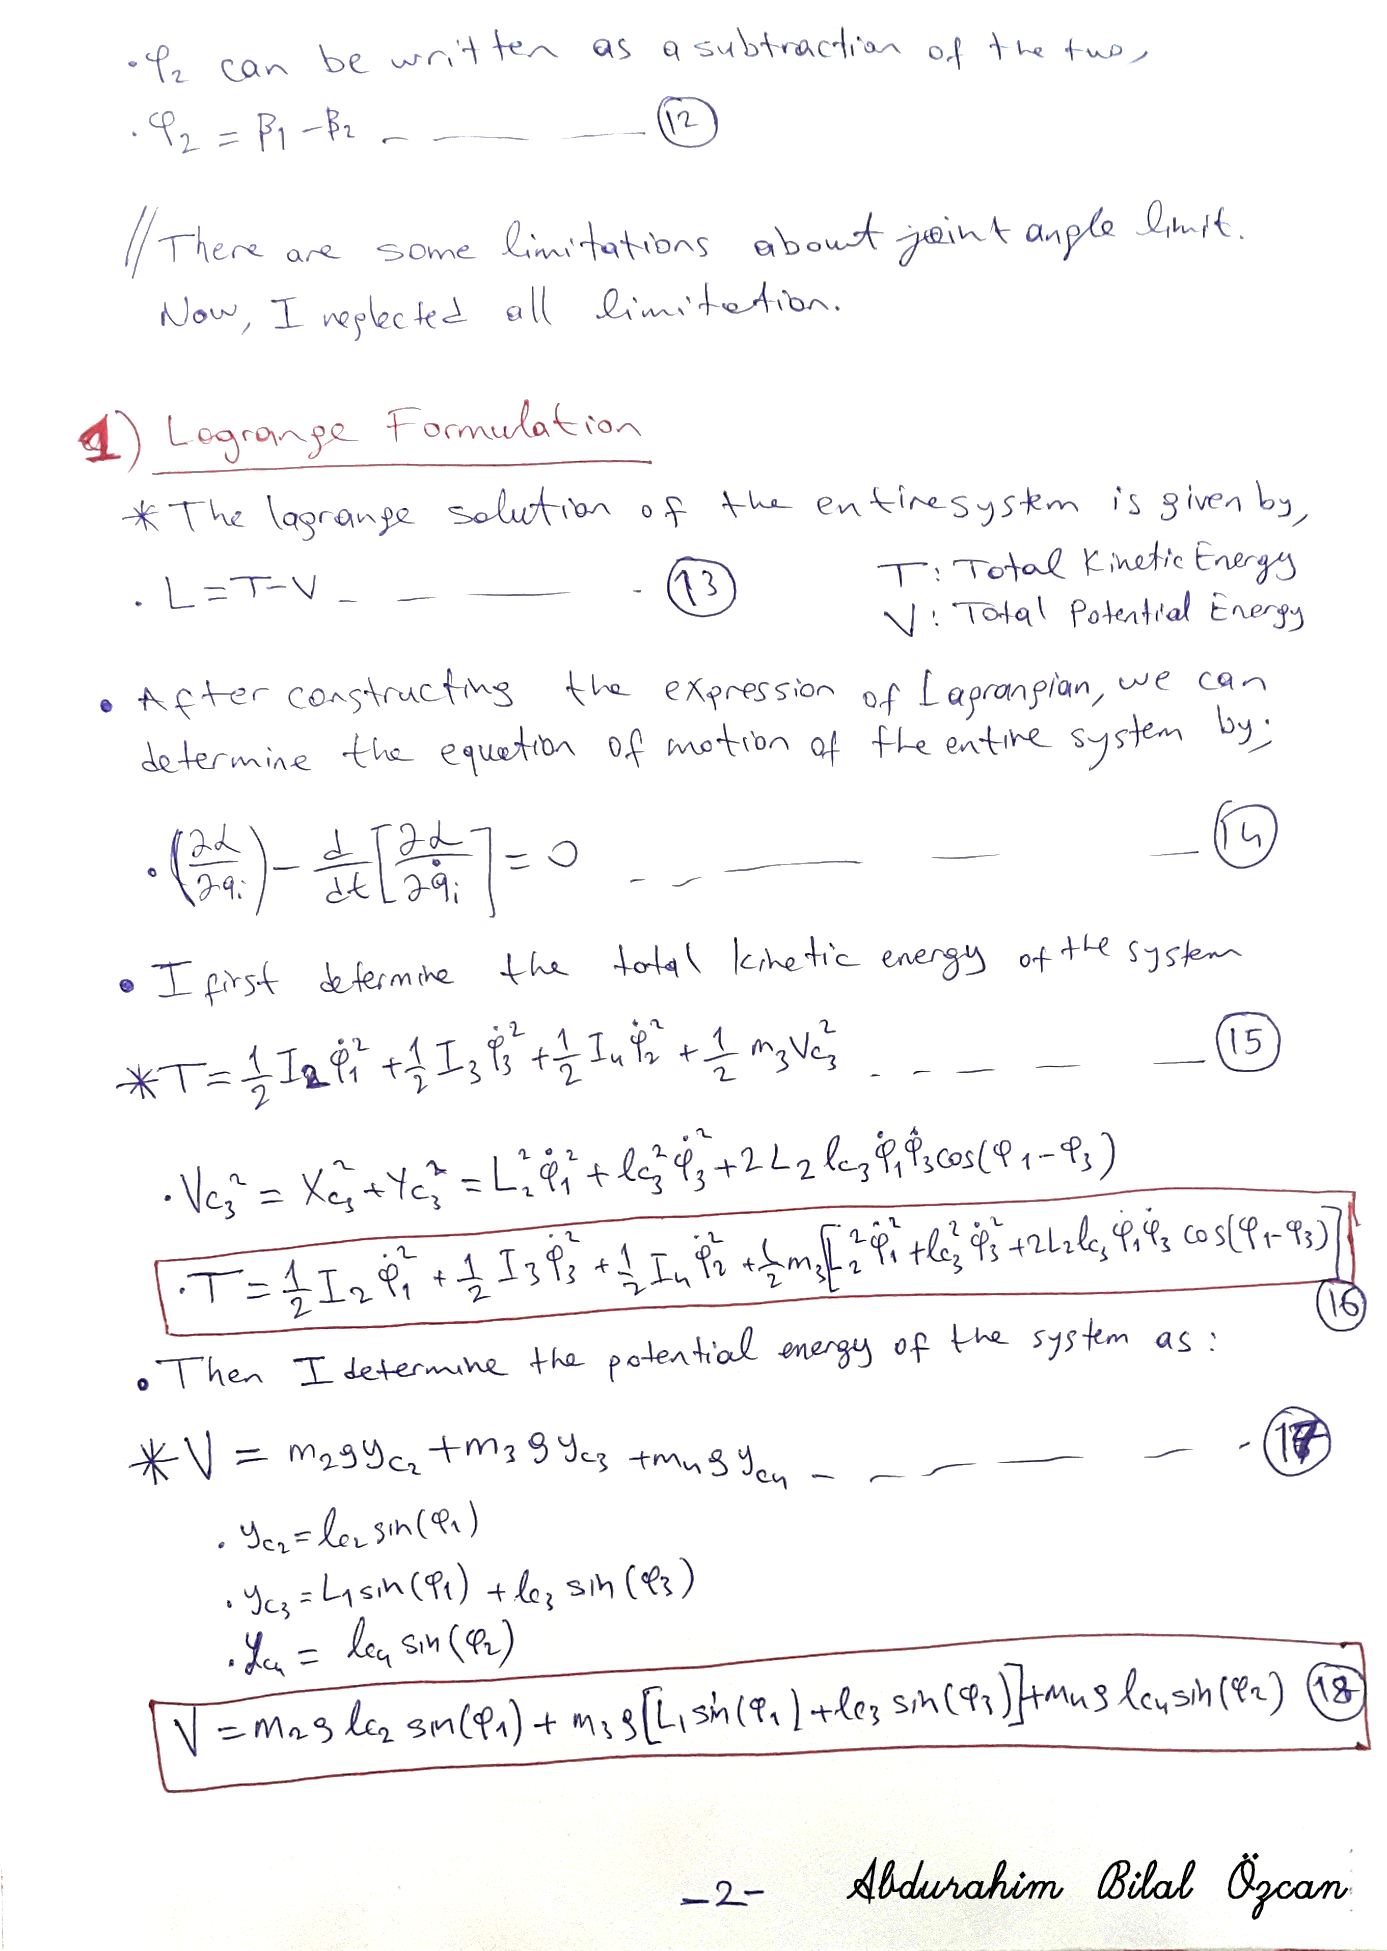 · φ₂ can be written as a subtraction of the two,
· φ₂ = β₁ - β₂ - — — (12)
// There are some limitations about joint angle limit.
Now, I neglected all limitation.
1) Lagrange Formulation
* The lagrange solution of the entire system is given by,
· L = T - V - — — - (13) T: Total Kinetic Energy
V: Total Potential Energy
• After constructing the expression of Lagrangian, we can
determine the equation of motion of the entire system by:
· (∂L/∂qᵢ) - d/dt [∂L/∂q̇ᵢ] = 0 - - — — — (14)
• I first determine the total kinetic energy of the system
* T = 1/2 I₂ φ̇₁² + 1/2 I₃ φ̇₃² + 1/2 I₄ φ̇₂² + 1/2 m₃ Vc₃² - - - — — — (15)
· Vc₃² = Xc₃² + Yc₃² = L₂² φ̇₁² + lc₃² φ̇₃² + 2 L₂ lc₃ φ̇₁ φ̇₃ cos(φ₁ - φ₃)
· T = 1/2 I₂ φ̇₁² + 1/2 I₃ φ̇₃² + 1/2 I₄ φ̇₂² + 1/2 m₃ [L₂² φ̇₁² + lc₃² φ̇₃² + 2L₂ lc₃ φ̇₁ φ̇₃ cos(φ₁ - φ₃)]
(16)
• Then I determine the potential energy of the system as :
* V = m₂ g yc₂ + m₃ g yc₃ + m₄ g yc₄ - - — — — - (17)
· yc₂ = lc₂ sin(φ₁)
· yc₃ = L₁ sin(φ₁) + lc₃ sin(φ₃)
· yc₄ = lc₄ sin(φ₂)
V = m₂ g lc₂ sin(φ₁) + m₃ g [L₁ sin(φ₁) + lc₃ sin(φ₃)] + m₄ g lc₄ sin(φ₂) (18)
-2- Abdurahim Bilal Özcan